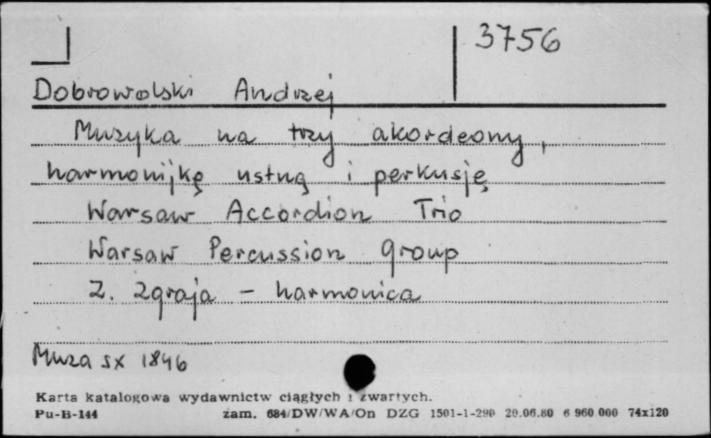 3756
Dobrowolski Andrzej
Muzyka na trzy akordeony,
harmonijkę ustną i perkusję
Warsaw Accordion Trio
Warsaw Percussion Group
Z. Zgraja - harmonica
Muza SX 1846
Karta katalogowa wydawnictw ciągłych i zwartych.
Pu-B-144 zam. 684/DW/WA/On DZG 1501-1-290 20.06.80 6 960 000 74x120